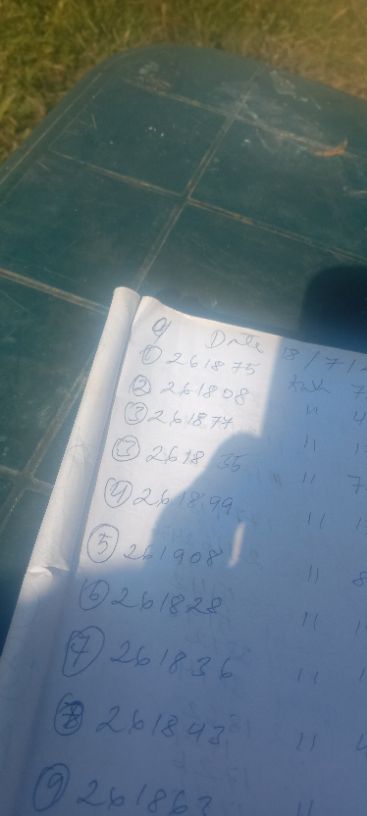 9 Date 18/7/
① 261875 7
② 261808 " 4
③ 261877 "
③ 261835 " 7
④ 261899 "
⑤ 261908 " 8
⑥ 261828 "
⑦ 261836 "
⑧ 261843 " 4
⑨ 261863 "